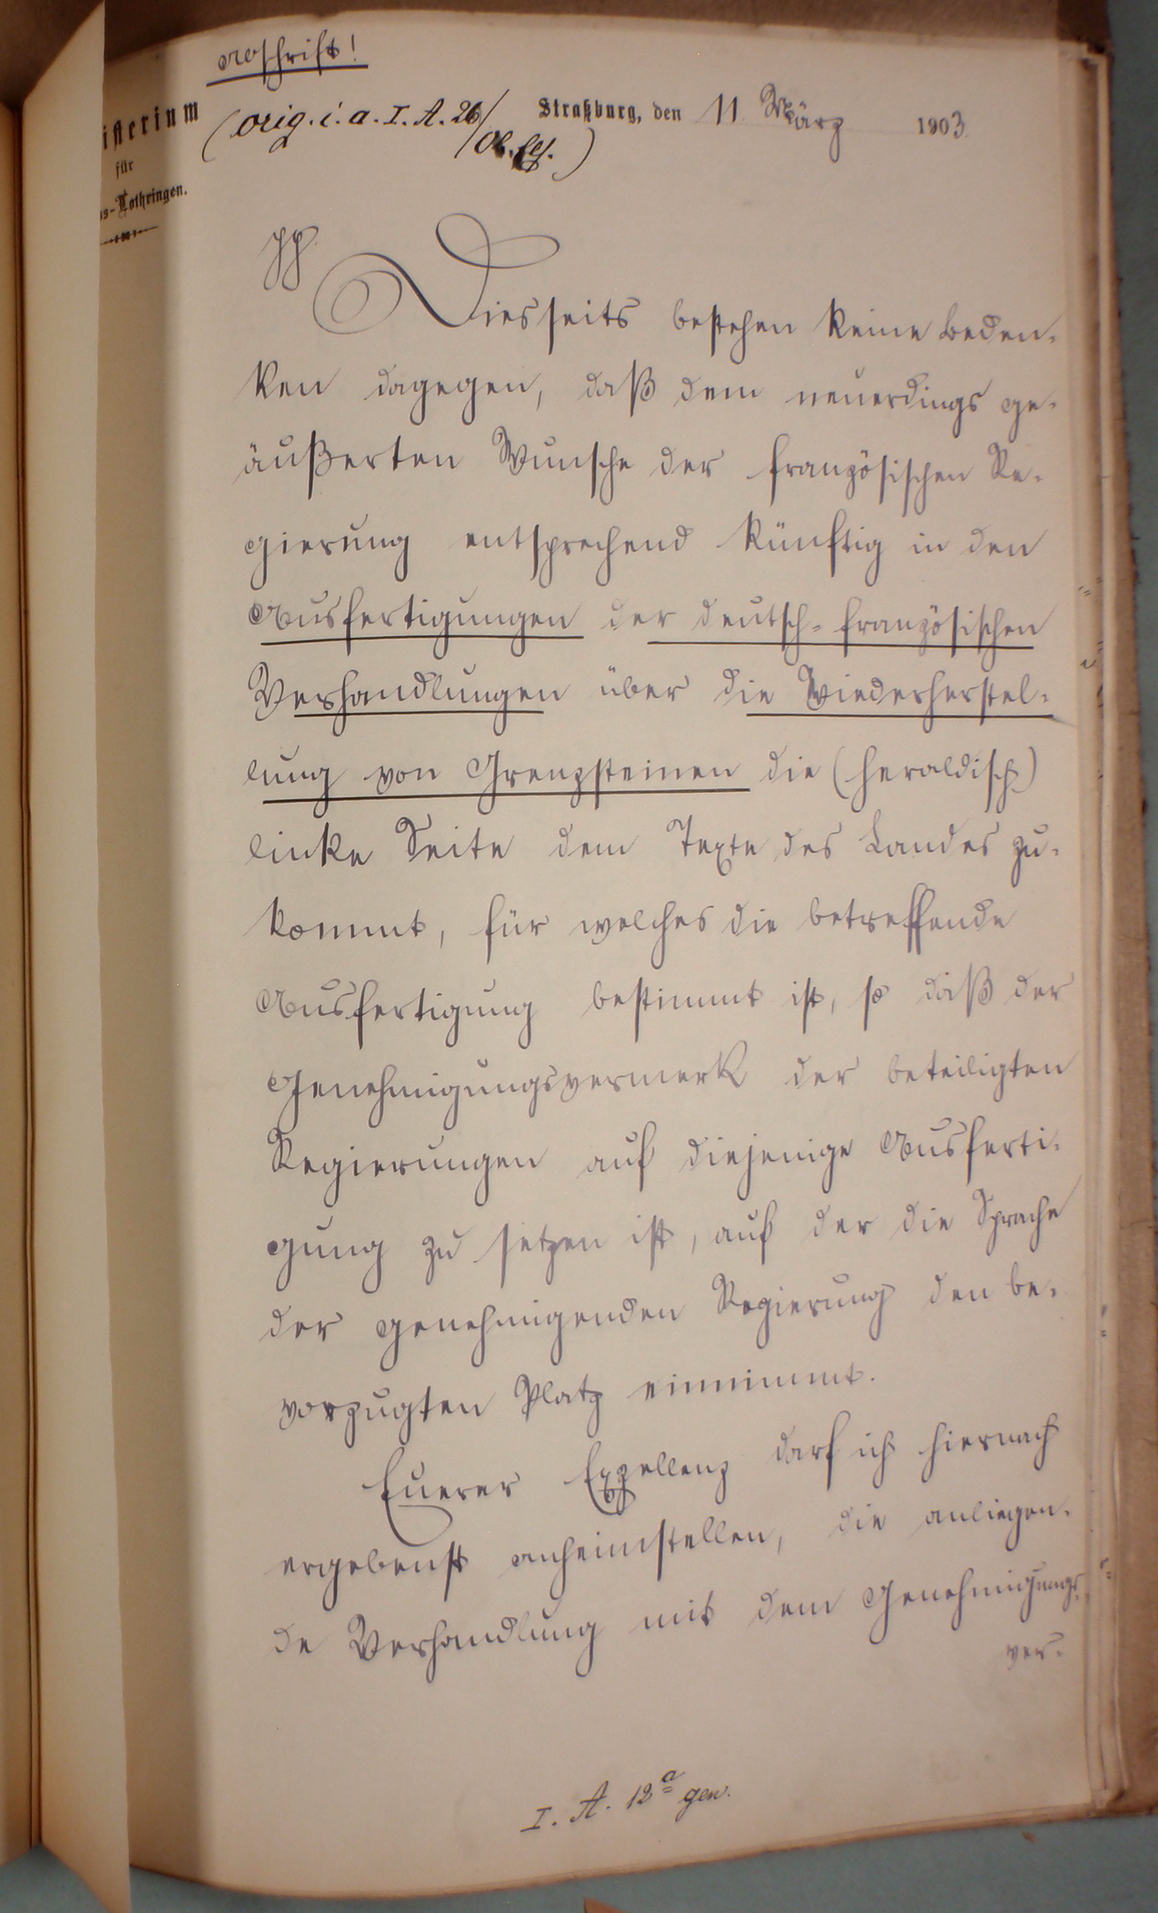 Abschrift!
isterium
für
s-Lothringen.
(orig. i. a. I. A. 26/
/Ob.
Straßburg, den 11. März 1903
pp.
Diesseits bestehen keine Beden-
ken dagegen, daß dem neuerdings ge-
äußerten Wunsche der französischen Re-
gierung entsprechend künftig in den
Ausfertigungen der deutsch-französischen
Verhandlungen über die Wiederherstel-
lung von Grenzsteinen die (heraldisch)
linke Seite dem Texte des Landes zu-
kommt, für welches die betreffende
Ausfertigung bestimmt ist, so daß der
Genehmigungsvermerk der beteiligten
Regierungen auf diejenige Ausferti-
gung zu setzen ist, auf der die Sprache
der genehmigenden Regierung den be-
vorzugten Platz einnimmt.
Euerer Exzellenz darf ich hiernach
ergebenst anheimstellen, die anliegen-
de Verhandlung mit dem Genehmigungs-
ver-
I. A. 12a gen.